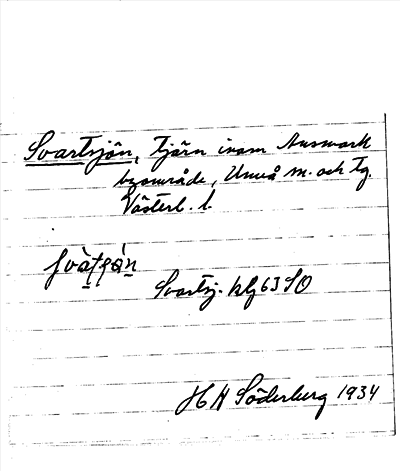 Svartsjön, tjärn inom Ansmark
byområde, Umeå m. och tg.
Västerb. l.
Svartsj. klg 63 SO
H H Söderberg 1934